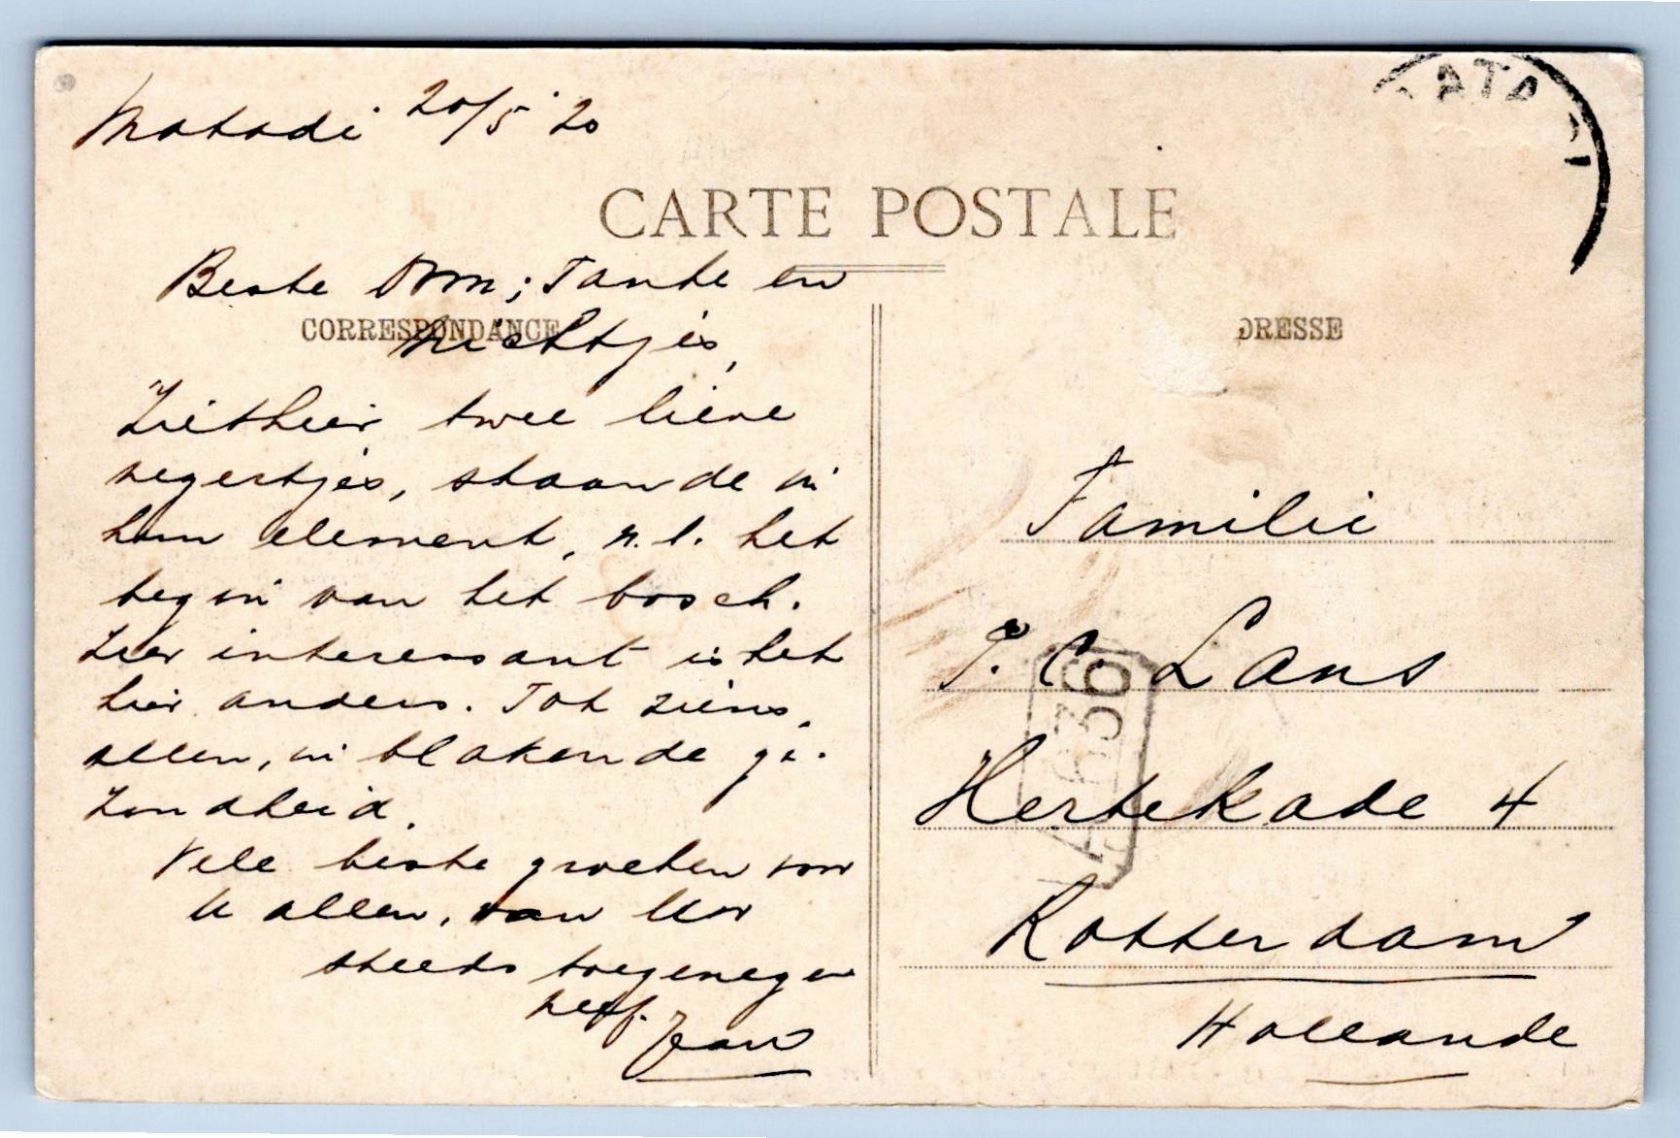 Matadi 20/5 '20
CARTE POSTALE
Beste Oom; Tante en
CORRESPONDANCE
Nichtjes,
Ziethier twee lieve
negertjes, staande in
hun element, n.l. het
begin van het bosch.
Zeer interessant is het
hier anders. Tot ziens,
allen, in blakende ge-
zondheid.
Vele beste groeten voor
U allen, van Uw
steeds toegenegen
neef.
Jean
DRESSE
Familie
P. C. Lans
Hertekade 4
Rotterdam
Hollande